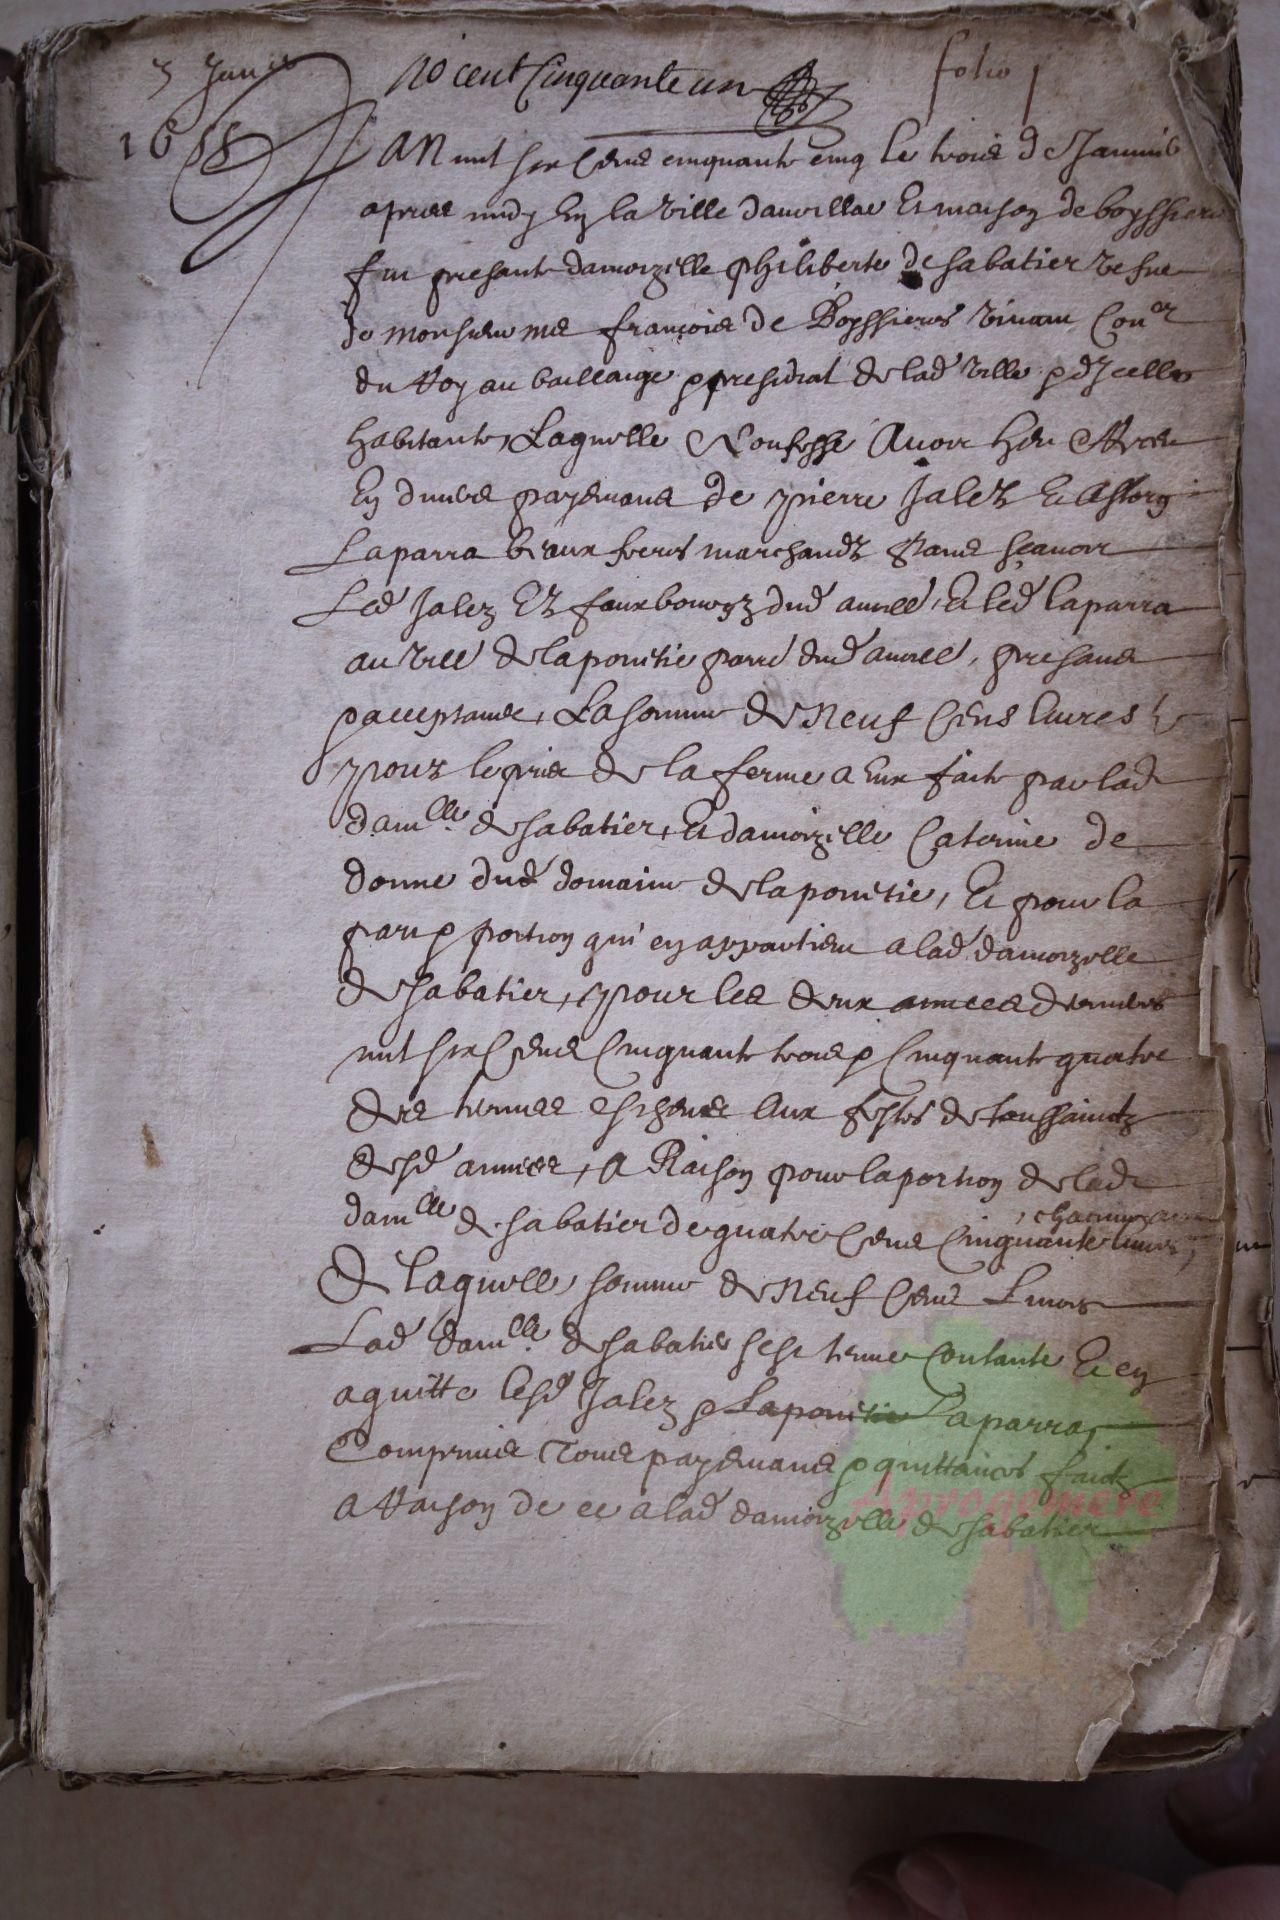 3 Janvr
No cent Cinquante un
folio 1
1655
L'AN mil six Cens cinquante cinq le trois de Janvier
apres midy En la Ville daurillac Et maison de boyssieres
fut presante damoizelle philiberte de sabatier vefve
de monsieur me françois de Boyssieres vivant Coner
du Roy au bailliaige & presidial de lad ville & dIcelle
habitante, Laquelle Confesse Avoir heu & Receu
En divers payemans de pierre Jalez Et Astorg
Laparra beaux freres marchandz
Led Jalez Ez fauxbourgz dud aurillac, Et led laparra
au vilē de laponetie parre dud aurillac, presans
& acceptans, La somme de Neuf Cens livres
pour le prix de la ferme a Eux faite par lad
damlle de sabatier, Et damoizelle Caterine de
donne dud domaine de laponetie, Et pour la
part & portion qui en appartient a lad damoizelle
de sabatier, pour les deux annees dernieres
mil six Cens Cinquante trois & Cinquante quatre
des termes escheus Aux festes de toussaintz
desd annees, A Raison pour la portion de lad
, chacune an
damlle de sabatier de quatre Cens Cinquante livres,
De laquelle somme de Neuf Cens Livres
Lad damlle de sabatier sest tenue Contante Et en
aquitte lesd Jalez & Laponetie Laparra,
Comprins Tous payemans & quittances faictz
A Raison de ce a lad damoizelle de sabatier
Aprogemere